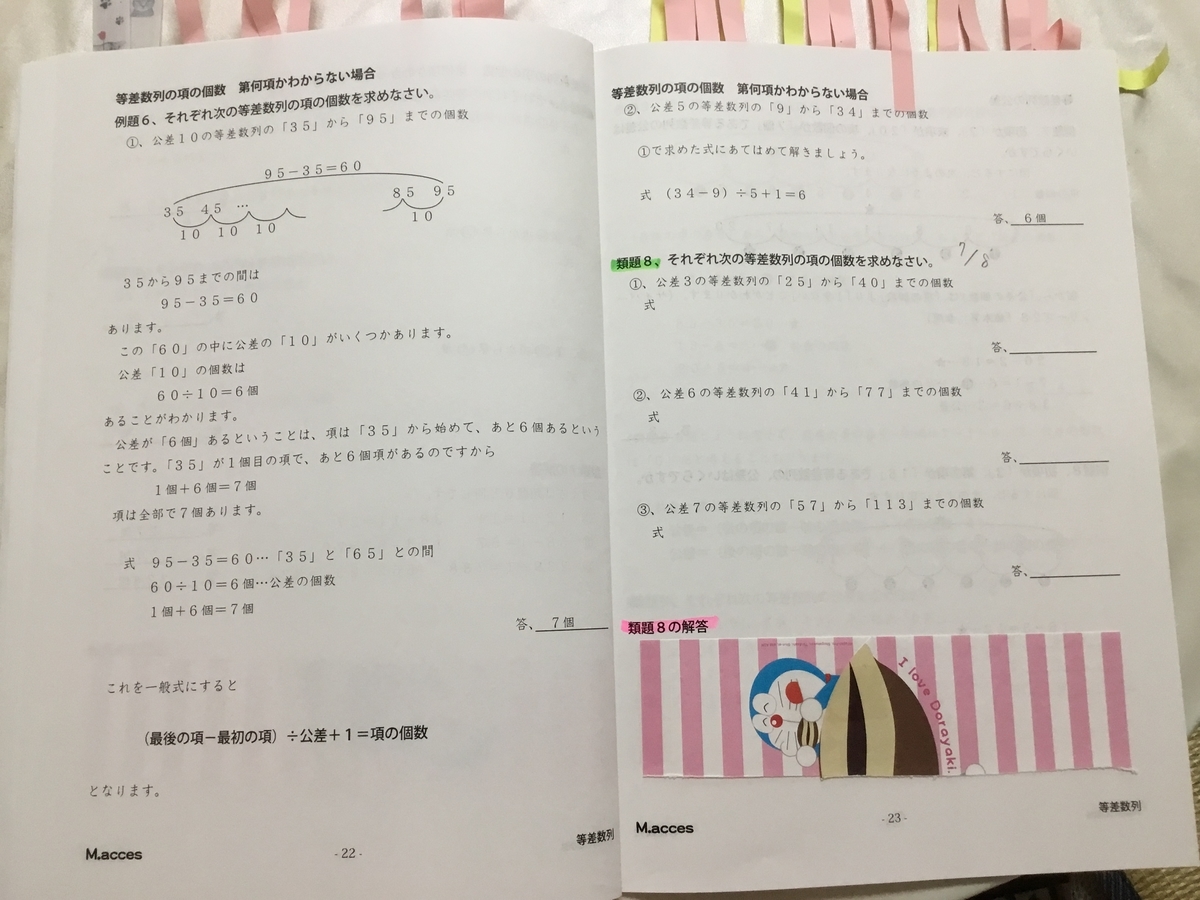 等差数列の項の個数　第何項かわからない場合
例題６、それぞれ次の等差数列の項の個数を求めなさい。
①、公差１０の等差数列の「３５」から「９５」までの個数
９５－３５＝６０
３５　４５　…　８５　９５
１０　１０　１０　１０
３５から９５までの間は
９５－３５＝６０
あります。
この「６０」の中に公差の「１０」がいくつかあります。
公差「１０」の個数は
６０÷１０＝６個
あることがわかります。
公差が「６個」あるということは、項は「３５」から始めて、あと６個あるという
ことです。「３５」が１個目の項で、あと６個項があるのですから
１個＋６個＝７個
項は全部で７個あります。
式　９５－３５＝６０…「３５」と「６５」との間
６０÷１０＝６個…公差の個数
１個＋６個＝７個
答、　７個
これを一般式にすると
（最後の項－最初の項）÷公差＋１＝項の個数
となります。
M.acces
- 22 -
等差数列
等差数列の項の個数　第何項かわからない場合
②、公差５の等差数列の「９」から「３４」までの個数
①で求めた式にあてはめて解きましょう。
式　（３４－９）÷５＋１＝６
答、　６個
類題８、それぞれ次の等差数列の項の個数を求めなさい。　7/8
①、公差３の等差数列の「２５」から「４０」までの個数
式
答、
②、公差６の等差数列の「４１」から「７７」までの個数
式
答、
③、公差７の等差数列の「５７」から「１１３」までの個数
式
答、
類題８の解答
I love Dorayaki.
M.acces
- 23 -
等差数列